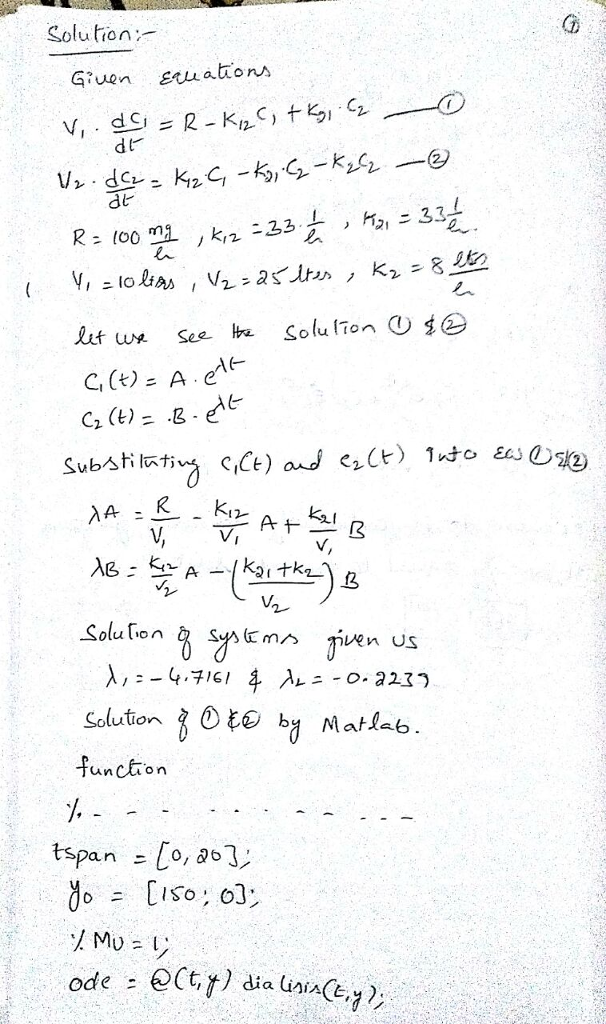 ①
Solution:-
Given equations
V₁ · dC₁/dt = R - K₁₂C₁ + K₂₁·C₂ —①
V₂ · dC₂/dt = K₁₂C₁ - K₂₁·C₂ - K₂C₂ —②
R = 100 mg/h , k₁₂ = 33 · l/h , K₂₁ = 33 l/h.
V₁ = 10 litrs , V₂ = 25 ltes , K₂ = 8 ltrs/h
let we see the solution ① & ②
C₁(t) = A · e^λt
C₂(t) = · B · e^λt
Substituting C₁(t) and C₂(t) into Eqs ① & ②
λA = R/V₁ - K₁₂/V₁ A + K₂₁/V₁ B
λB = K₁₂/V₂ A - (K₂₁ + K₂/V₂) B
Solution of systems given us
λ₁ = -4.7161 & λ₂ = -0.2239
Solution of ① & ② by Matlab.
function
% - - - - - - - - -
tspan = [0, 20];
yo = [150; 0];
% MU = 1;
ode = @(t,y) dialisis(t,y);